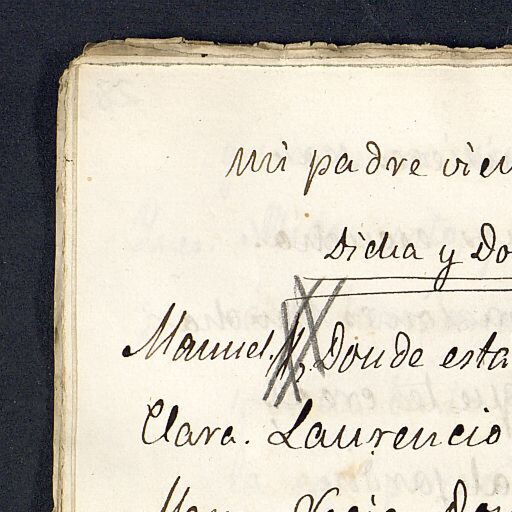 mi padre vien
Dicha y Do
Manuel. Donde esta
Clara. Laurencio